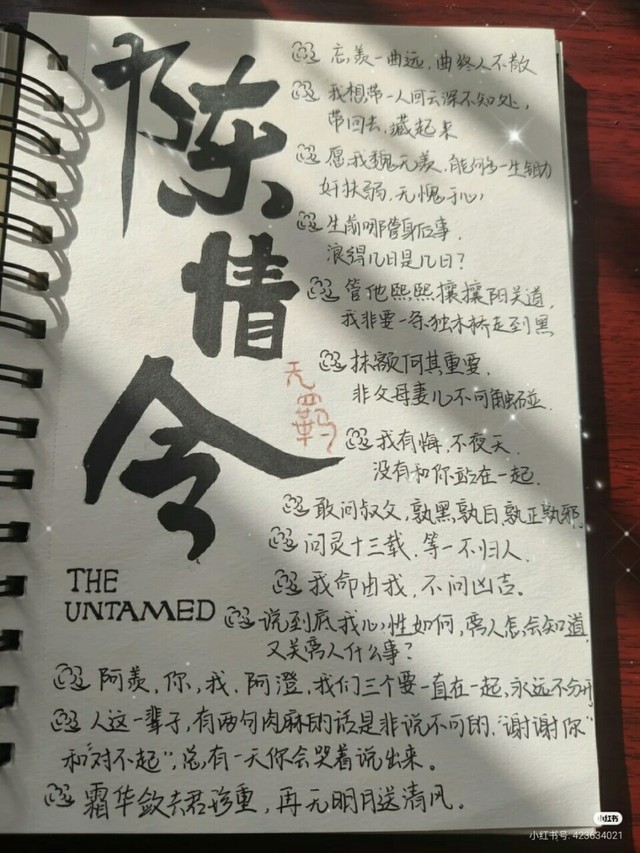 陈情令
无羁
THE
UNTAMED
忘羡一曲远，曲终人不散
我想带一人回云深不知处，
带回去，藏起来
愿我魏无羡，能够一生锄
奸扶弱，无愧于心
生前哪管身后事，
浪得几日是几日？
管他熙熙攘攘阳关道，
我非要一条独木桥走到黑
抹额何其重要，
非父母妻儿不可触碰.
我有悔，不夜天，
没有和你站在一起.
敢问叔父，孰黑孰白，孰正孰邪
问灵十三载，等一不归人.
我命由我，不问凶吉。
说到底我心性如何，离人怎会知道
又关离人什么事？
阿羡，你，我，阿澄，我们三个要一直在一起，永远不分开
人这一辈子，有两句肉麻的话是非说不可的，“谢谢你”
和“对不起”，总有一天你会哭着说出来。
霜华敛去君珍重，再无明月送清风。
小红书
小红书号: 423634021